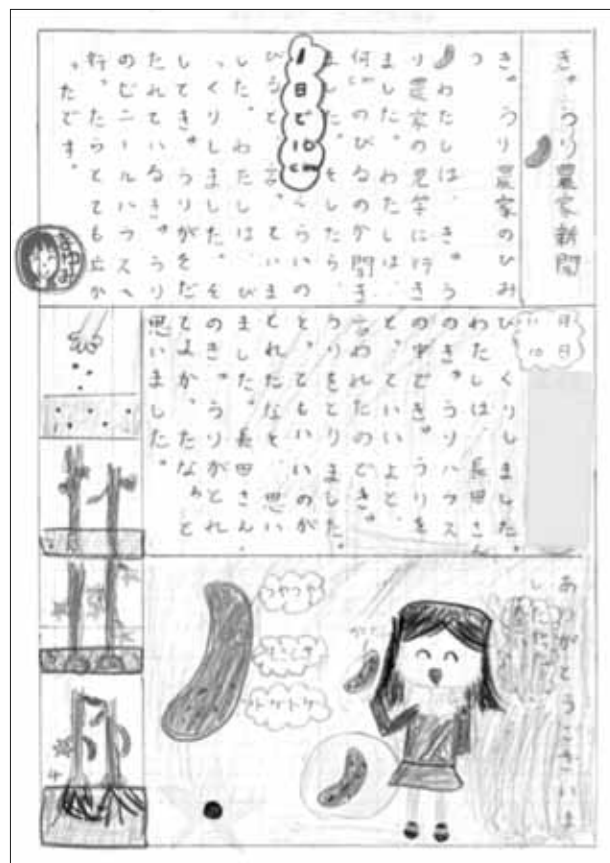 きゅうり農家新聞
きゅうり農家のひみ
つ
わたしは、きゅう
り農家の見学に行き
ました。わたしは、
何cmのびるのか聞き
ました。そしたら、
1日で10cm
くらいの
びると言っていま
した。わたしは、び
っくりしました。そ
してきゅうりがそだ
たれているきゅうり
のビニールハウスへ
行ったらとても広か
ったです。
まゆみ
11月
10日
びっくりしました。
わたしは、長田さん
のきゅうりハウス
の中できゅうりを
とっていいよと、
言われたのできゅ
うりをとりました。
とってもいいのが
とれたなと、思い
ました。長田さん
のきゅうりがとれ
てよかったなぁと
思いました。
ありがとうございま
した
つやつや
トゲトゲ